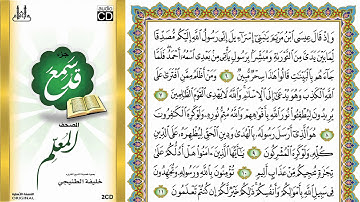 audio
CD
جزء
قد سمع
المصحف
المعلم
خليفة الطنيجي
ORIGINAL
2CD
وَإِذْ قَالَ عِيسَى ٱبْنُ مَرْيَمَ يَٰبَنِىٓ إِسْرَٰٓءِيلَ إِنِّى رَسُولُ ٱللَّهِ إِلَيْكُم مُّصَدِّقًا
لِّمَا بَيْنَ يَدَىَّ مِنَ ٱلتَّوْرَىٰةِ وَمُبَشِّرًۢا بِرَسُولٍ يَأْتِى مِنۢ بَعْدِى ٱسْمُهُۥٓ أَحْمَدُ فَلَمَّا
جَآءَهُم بِٱلْبَيِّنَٰتِ قَالُوا۟ هَٰذَا سِحْرٌ مُّبِينٌ ٦ وَمَنْ أَظْلَمُ مِمَّنِ ٱفْتَرَىٰ عَلَى
ٱللَّهِ ٱلْكَذِبَ وَهُوَ يُدْعَىٰٓ إِلَى ٱلْإِسْلَٰمِ وَٱللَّهُ لَا يَهْدِى ٱلْقَوْمَ ٱلظَّٰلِمِينَ ٧
يُرِيدُونَ لِيُطْفِـُٔوا۟ نُورَ ٱللَّهِ بِأَفْوَٰهِهِمْ وَٱللَّهُ مُتِمُّ نُورِهِۦ وَلَوْ كَرِهَ ٱلْكَٰفِرُونَ
٨ هُوَ ٱلَّذِىٓ أَرْسَلَ رَسُولَهُۥ بِٱلْهُدَىٰ وَدِينِ ٱلْحَقِّ لِيُظْهِرَهُۥ عَلَى ٱلدِّينِ
كُلِّهِۦ وَلَوْ كَرِهَ ٱلْمُشْرِكُونَ ٩ يَٰٓأَيُّهَا ٱلَّذِينَ ءَامَنُوا۟ هَلْ أَدُلُّكُمْ عَلَىٰ
تِجَٰرَةٍ تُنجِيكُم مِّنْ عَذَابٍ أَلِيمٍ ١٠ تُؤْمِنُونَ بِٱللَّهِ وَرَسُولِهِۦ وَتُجَٰهِدُونَ
فِى سَبِيلِ ٱللَّهِ بِأَمْوَٰلِكُمْ وَأَنفُسِكُمْ ذَٰلِكُمْ خَيْرٌ لَّكُمْ إِن كُنتُمْ تَعْلَمُونَ ١١